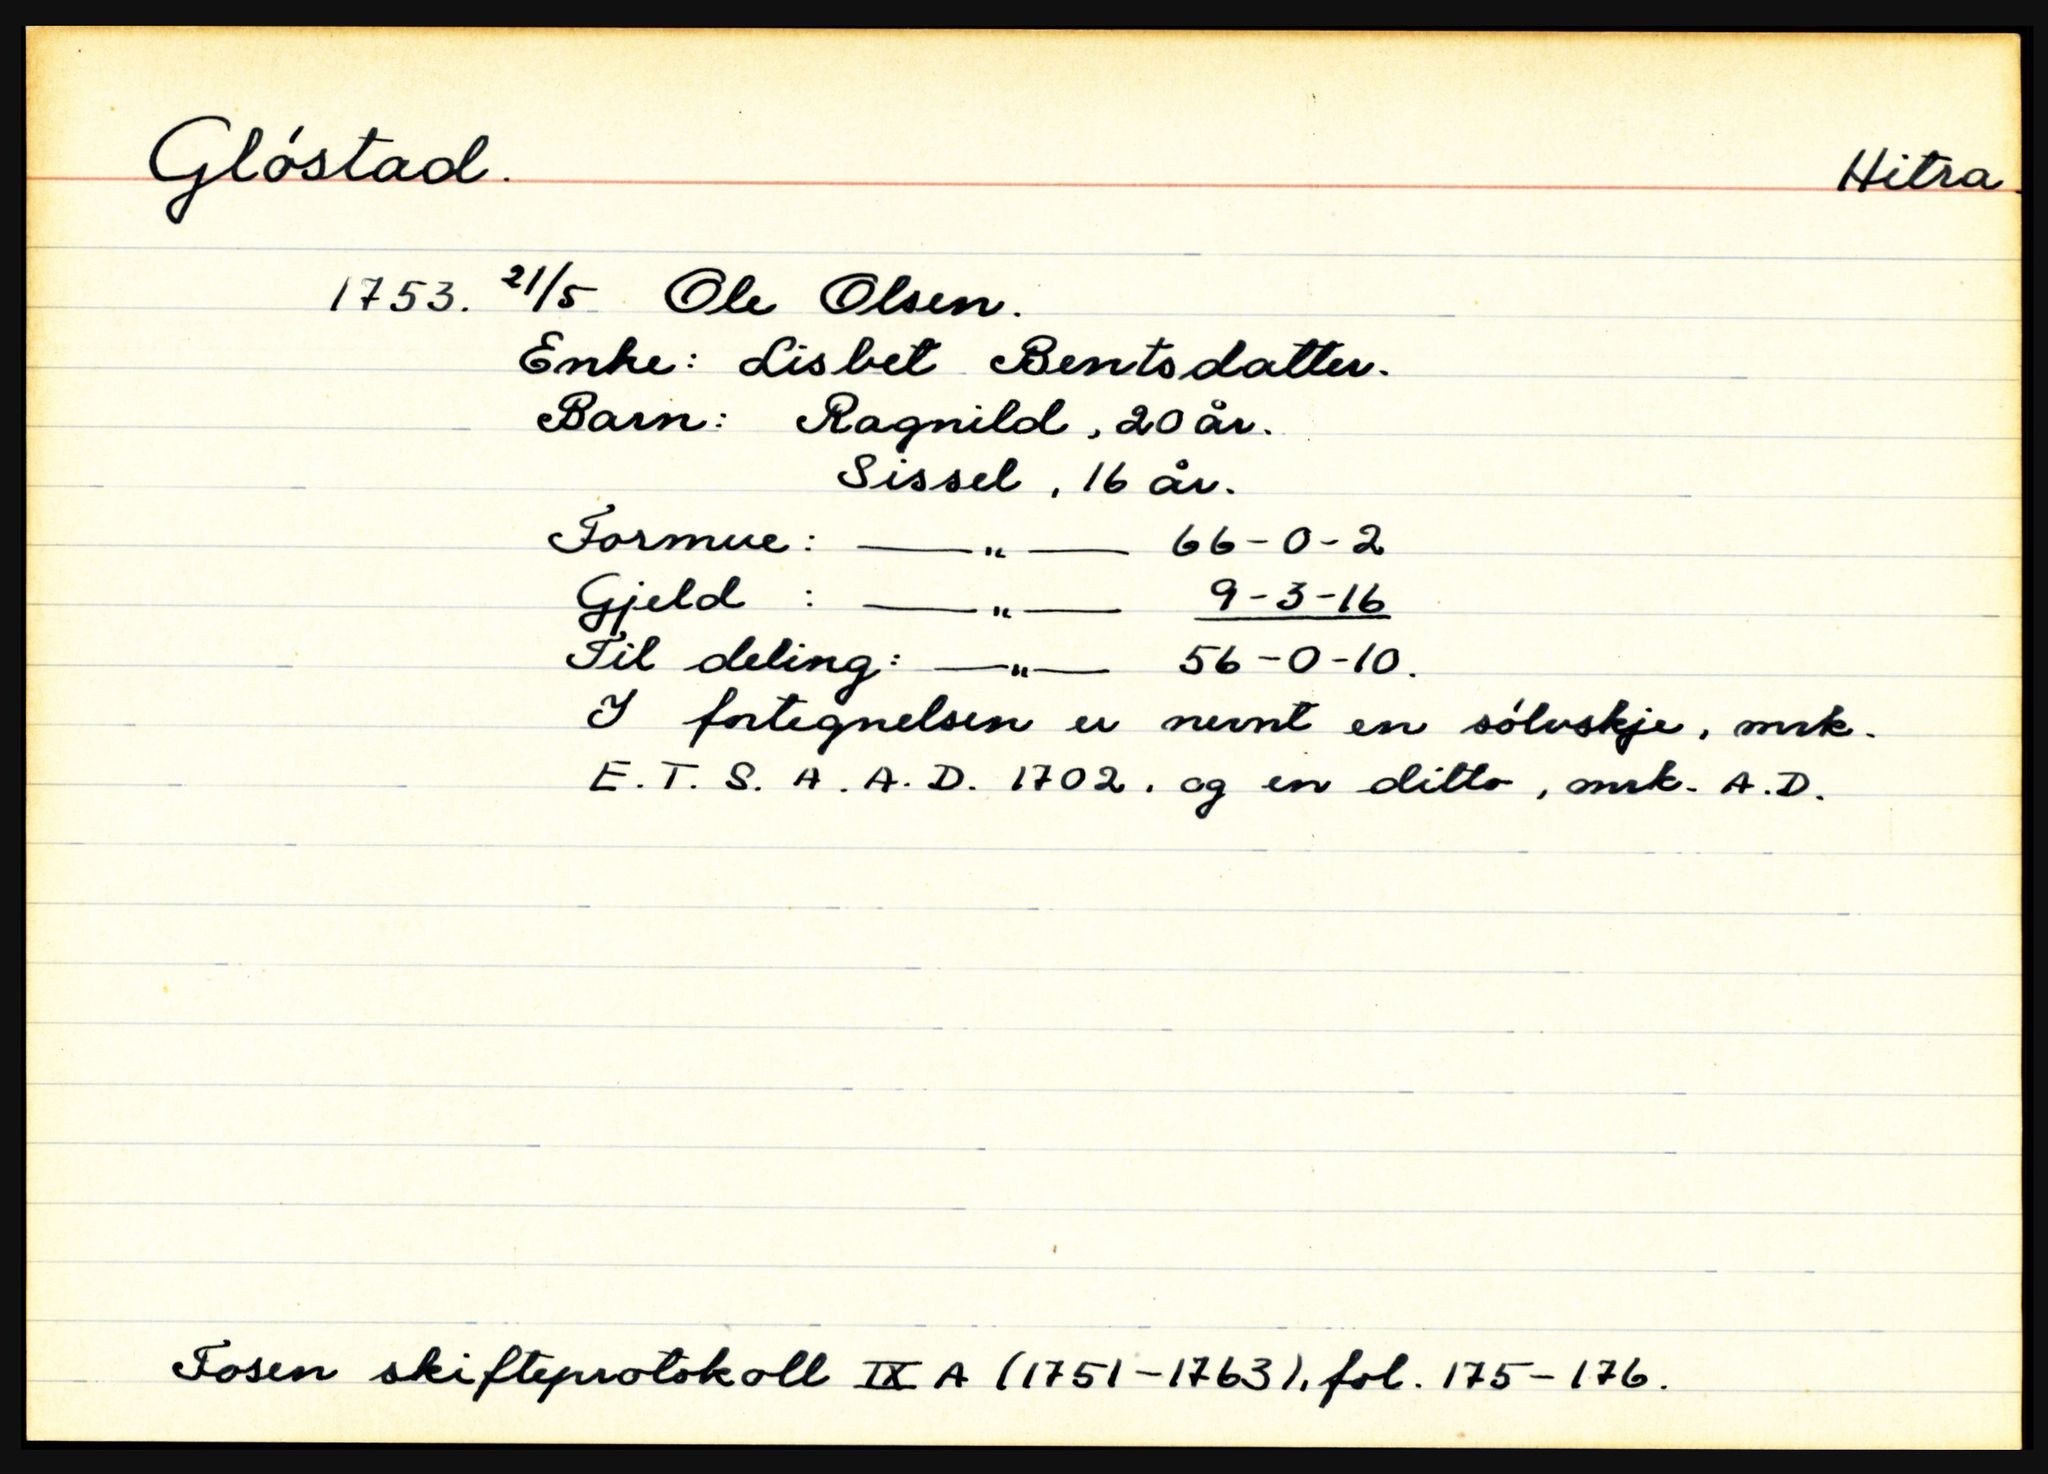 Glóstad. Hitra.
1753. 21/5 Ole Olsen.
Enke: Lisbet Bentsdatter.
Barn: Ragnild, 20 år.
Sissel, 16 år.
Formue: —„— 66-0-2
Gjeld : —„— 9-3-16
Til deling: —„— 56-0-10.
I fortegnelsen er nevnt en sólvskje, mrk.
E. T. S. A. A. D. 1702. og en ditto, mrk. A.D.
Fosen skifteprotokoll IX A (1751-1763), fol. 175-176.